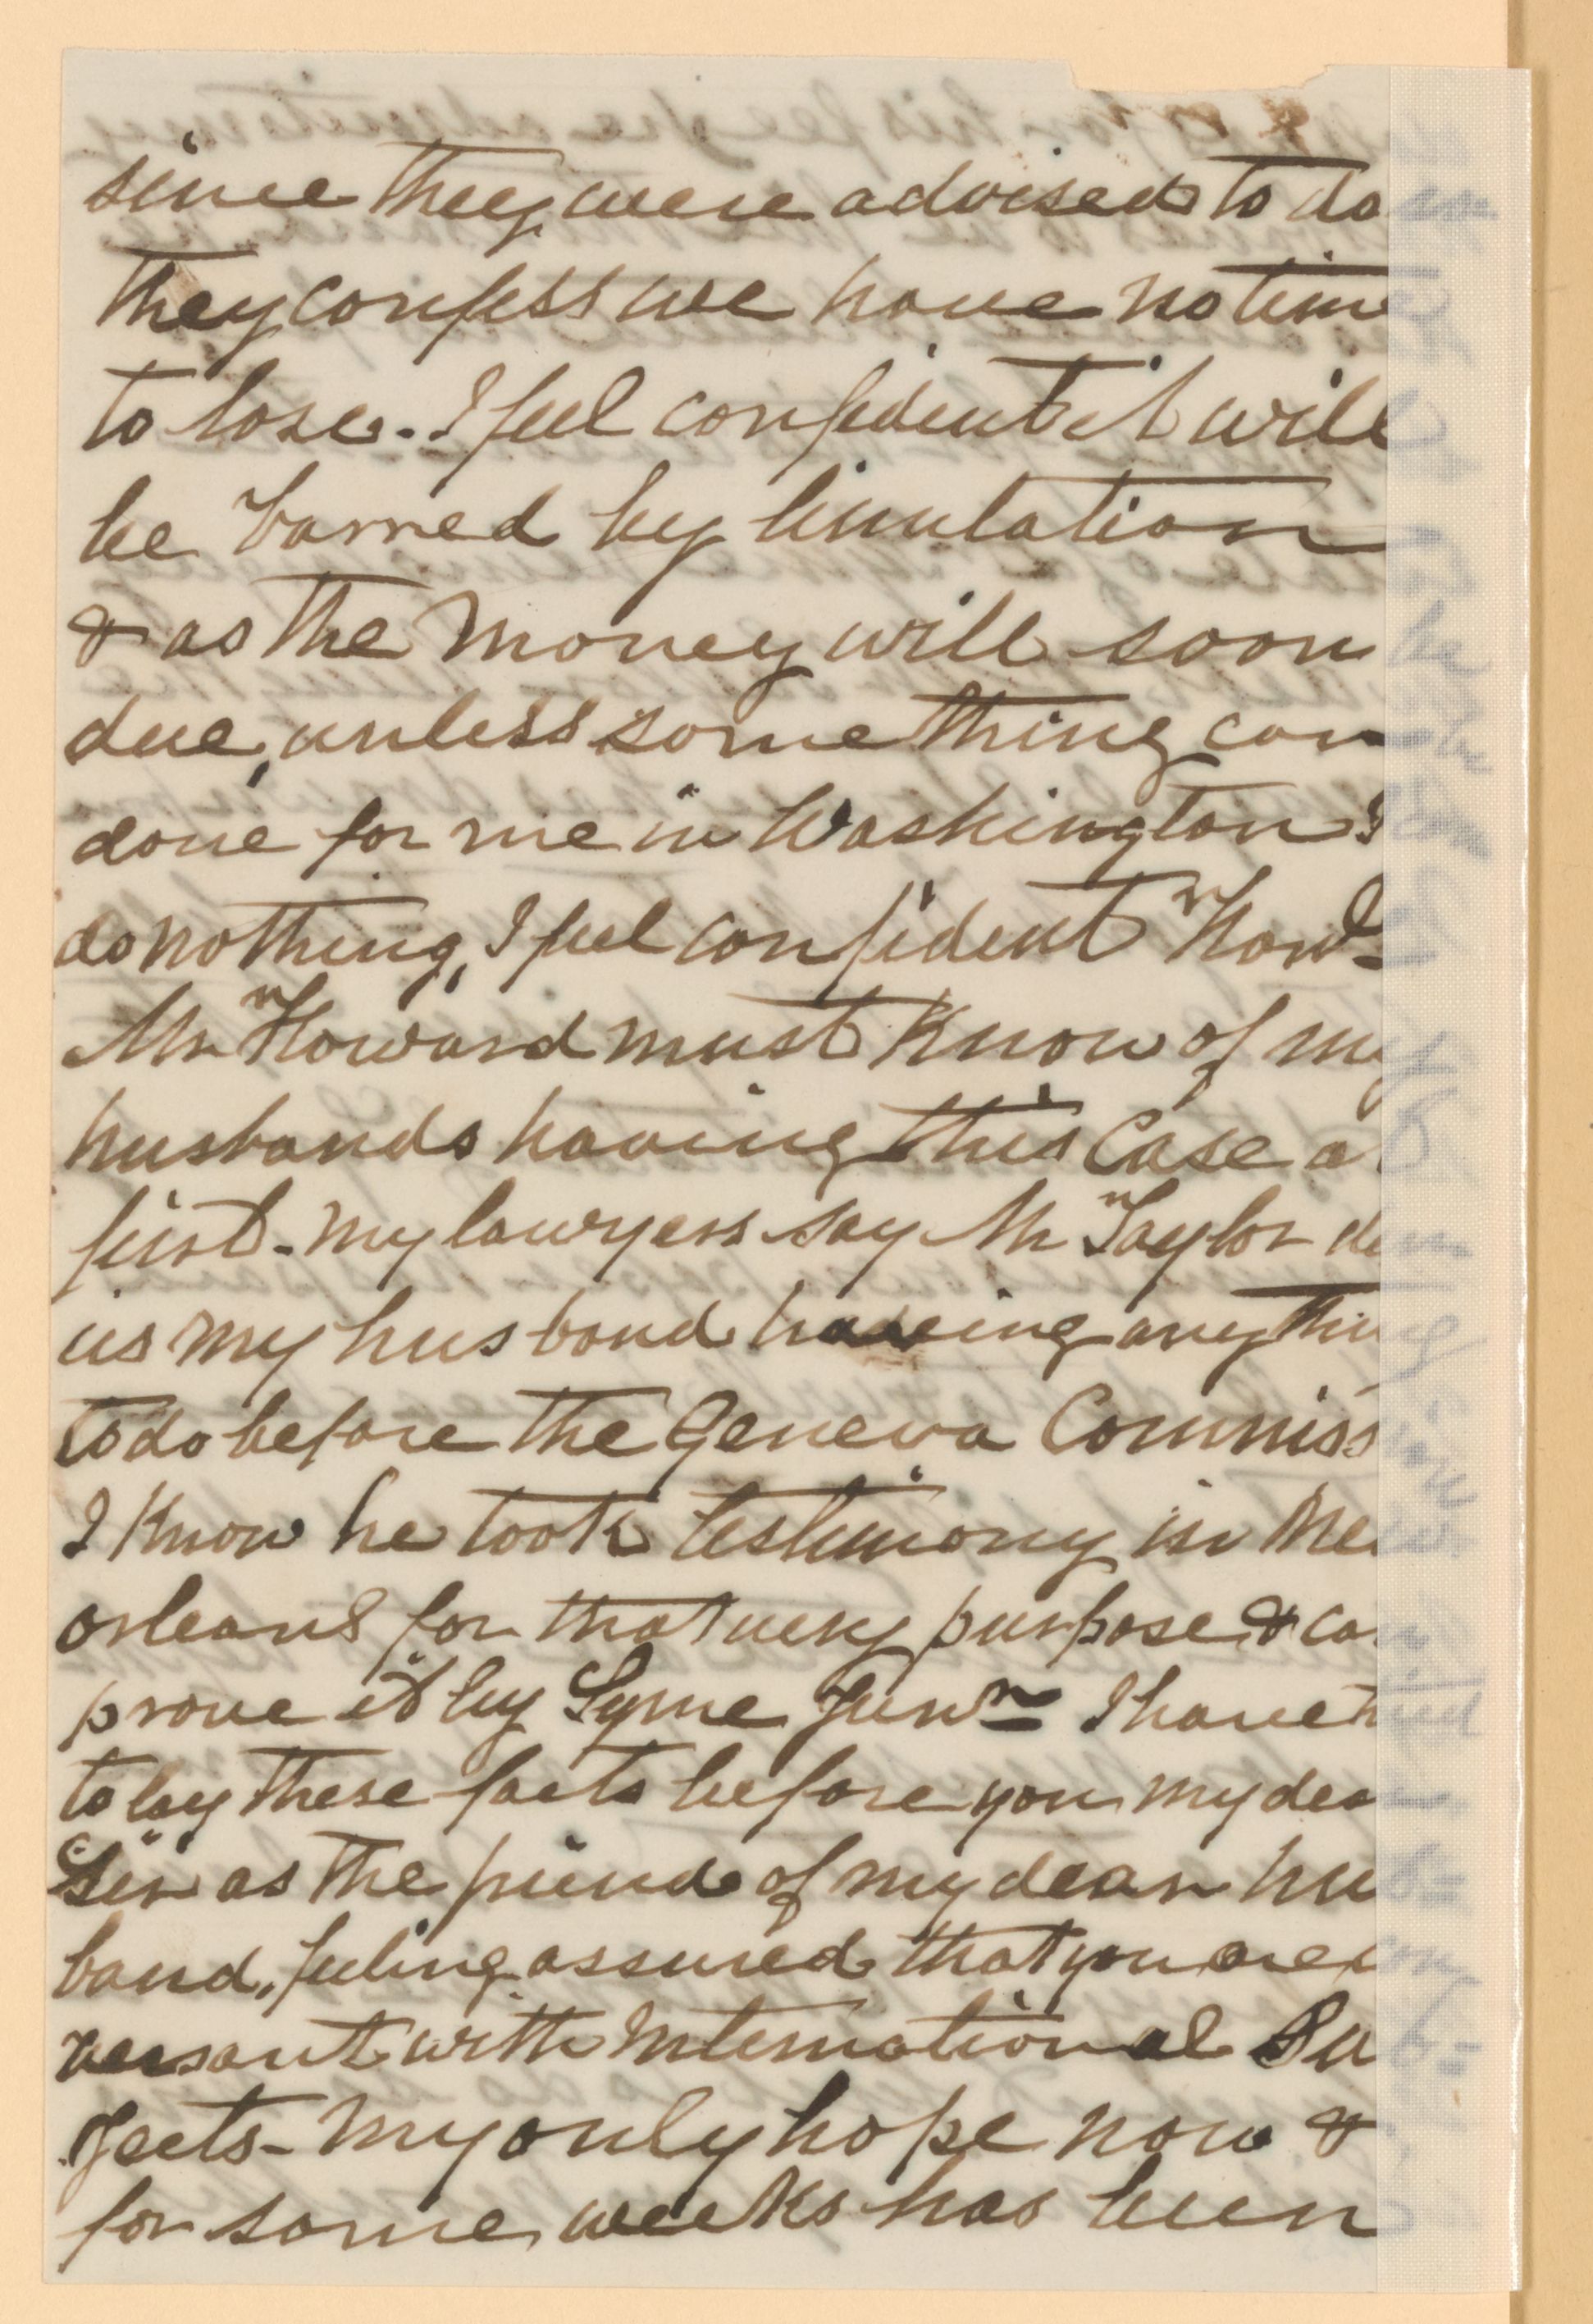 since they were advised to do
they confess we have no time
to lose. I feel confident it will
be barred by limitation
& as the money will soon
due, unless some thing can
done for me in Washington
do nothing, I feel confident "How-
Mr "Howard must know of my
husbands having this Case a
first - my lawyers say Mr "Taylor de
us my husband having any thin
to do before the Geneva Commiss
I know he took testimony in Ne
orleans for that very purpose & ca
prove it by Lyme Junr I have
to lay these facts before you my dea
Sir as the friend of my dear hu
band, feeling assured that you are
versant with International Su
jects - my only hope now &
for some weeks has been